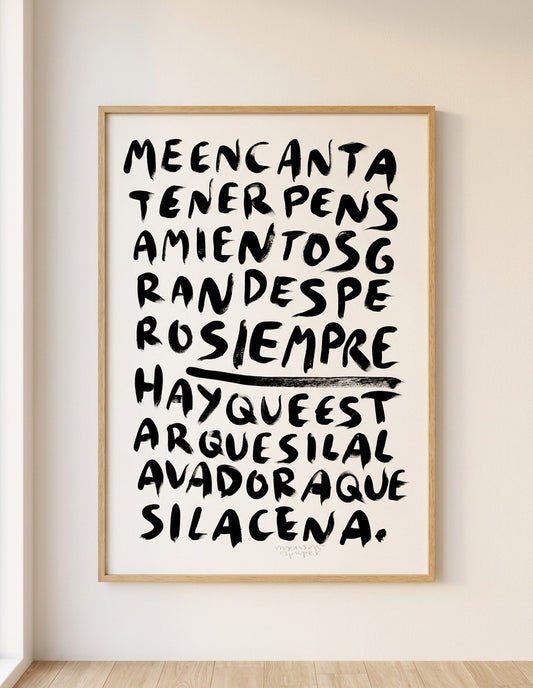 MEENCANTA
TENERPENS
AMIENTOSG
RANDESPE
ROSIEMPRE
HAYQUEEST
ARQUESILAL
AVADORAQUE
SILACENA.